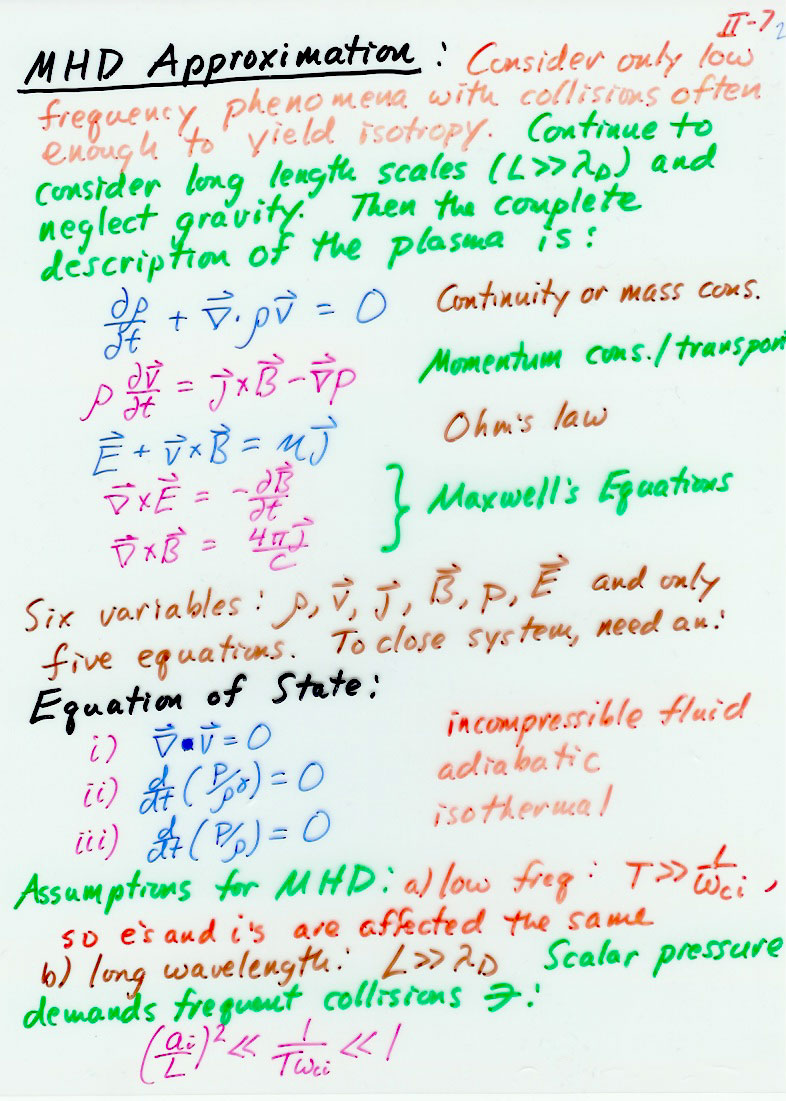 II-72
MHD Approximation: Consider only low
frequency phenomena with collisions often
enough to yield isotropy. Continue to
consider long length scales (L>>λ_D) and
neglect gravity. Then the complete
description of the plasma is:
∂ρ/∂t + ∇⃗·ρv⃗ = 0 Continuity or mass cons.
ρ ∂v⃗/∂t = j⃗×B⃗ − ∇⃗p Momentum cons./transport
E⃗ + v⃗×B⃗ = ηJ⃗ Ohm's law
∇⃗×E⃗ = −∂B⃗/∂t } Maxwell's Equations
∇⃗×B⃗ = 4πJ⃗/c
Six variables: ρ, v⃗, j⃗, B⃗, p, E⃗ and only
five equations. To close system, need an:
Equation of State:
i) ∇⃗·v⃗ = 0 incompressible fluid
ii) d/dt (P/ρ^γ) = 0 adiabatic
iii) d/dt (P/ρ) = 0 isothermal
Assumptions for MHD: a) low freq: T >> 1/ω_ci,
so e's and i's are affected the same
b) long wavelength: L >> λ_D Scalar pressure
demands frequent collisions ∋:
(a_i/L)² << 1/Tω_ci << 1